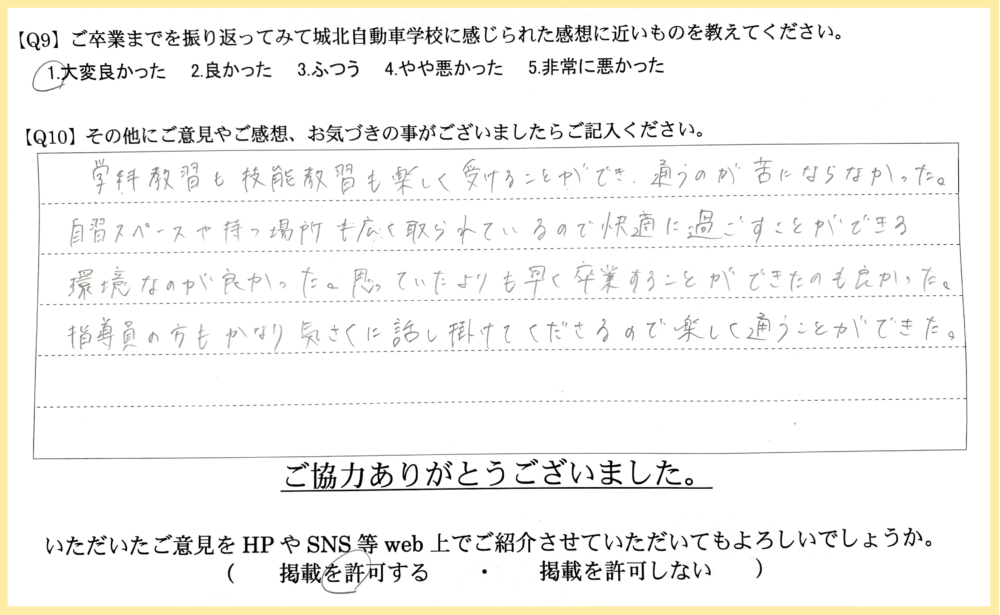 【Q9】ご卒業までを振り返ってみて城北自動車学校に感じられた感想に近いものを教えてください。
1.大変良かった 2.良かった 3.ふつう 4.やや悪かった 5.非常に悪かった
【Q10】その他にご意見やご感想、お気づきの事がございましたらご記入ください。
学科教習も技能教習も楽しく受けることができ、通うのが苦にならなかった。
自習スペースや待つ場所も広く取られているので快適に過ごすことができる
環境なのが良かった。思っていたよりも早く卒業することができたのも良かった。
指導員の方もかなり気さくに話し掛けてくださるので楽しく通うことができた。
ご協力ありがとうございました。
いただいたご意見をHPやSNS等web上でご紹介させていただいてもよろしいでしょうか。
( 掲載を許可する ・ 掲載を許可しない )